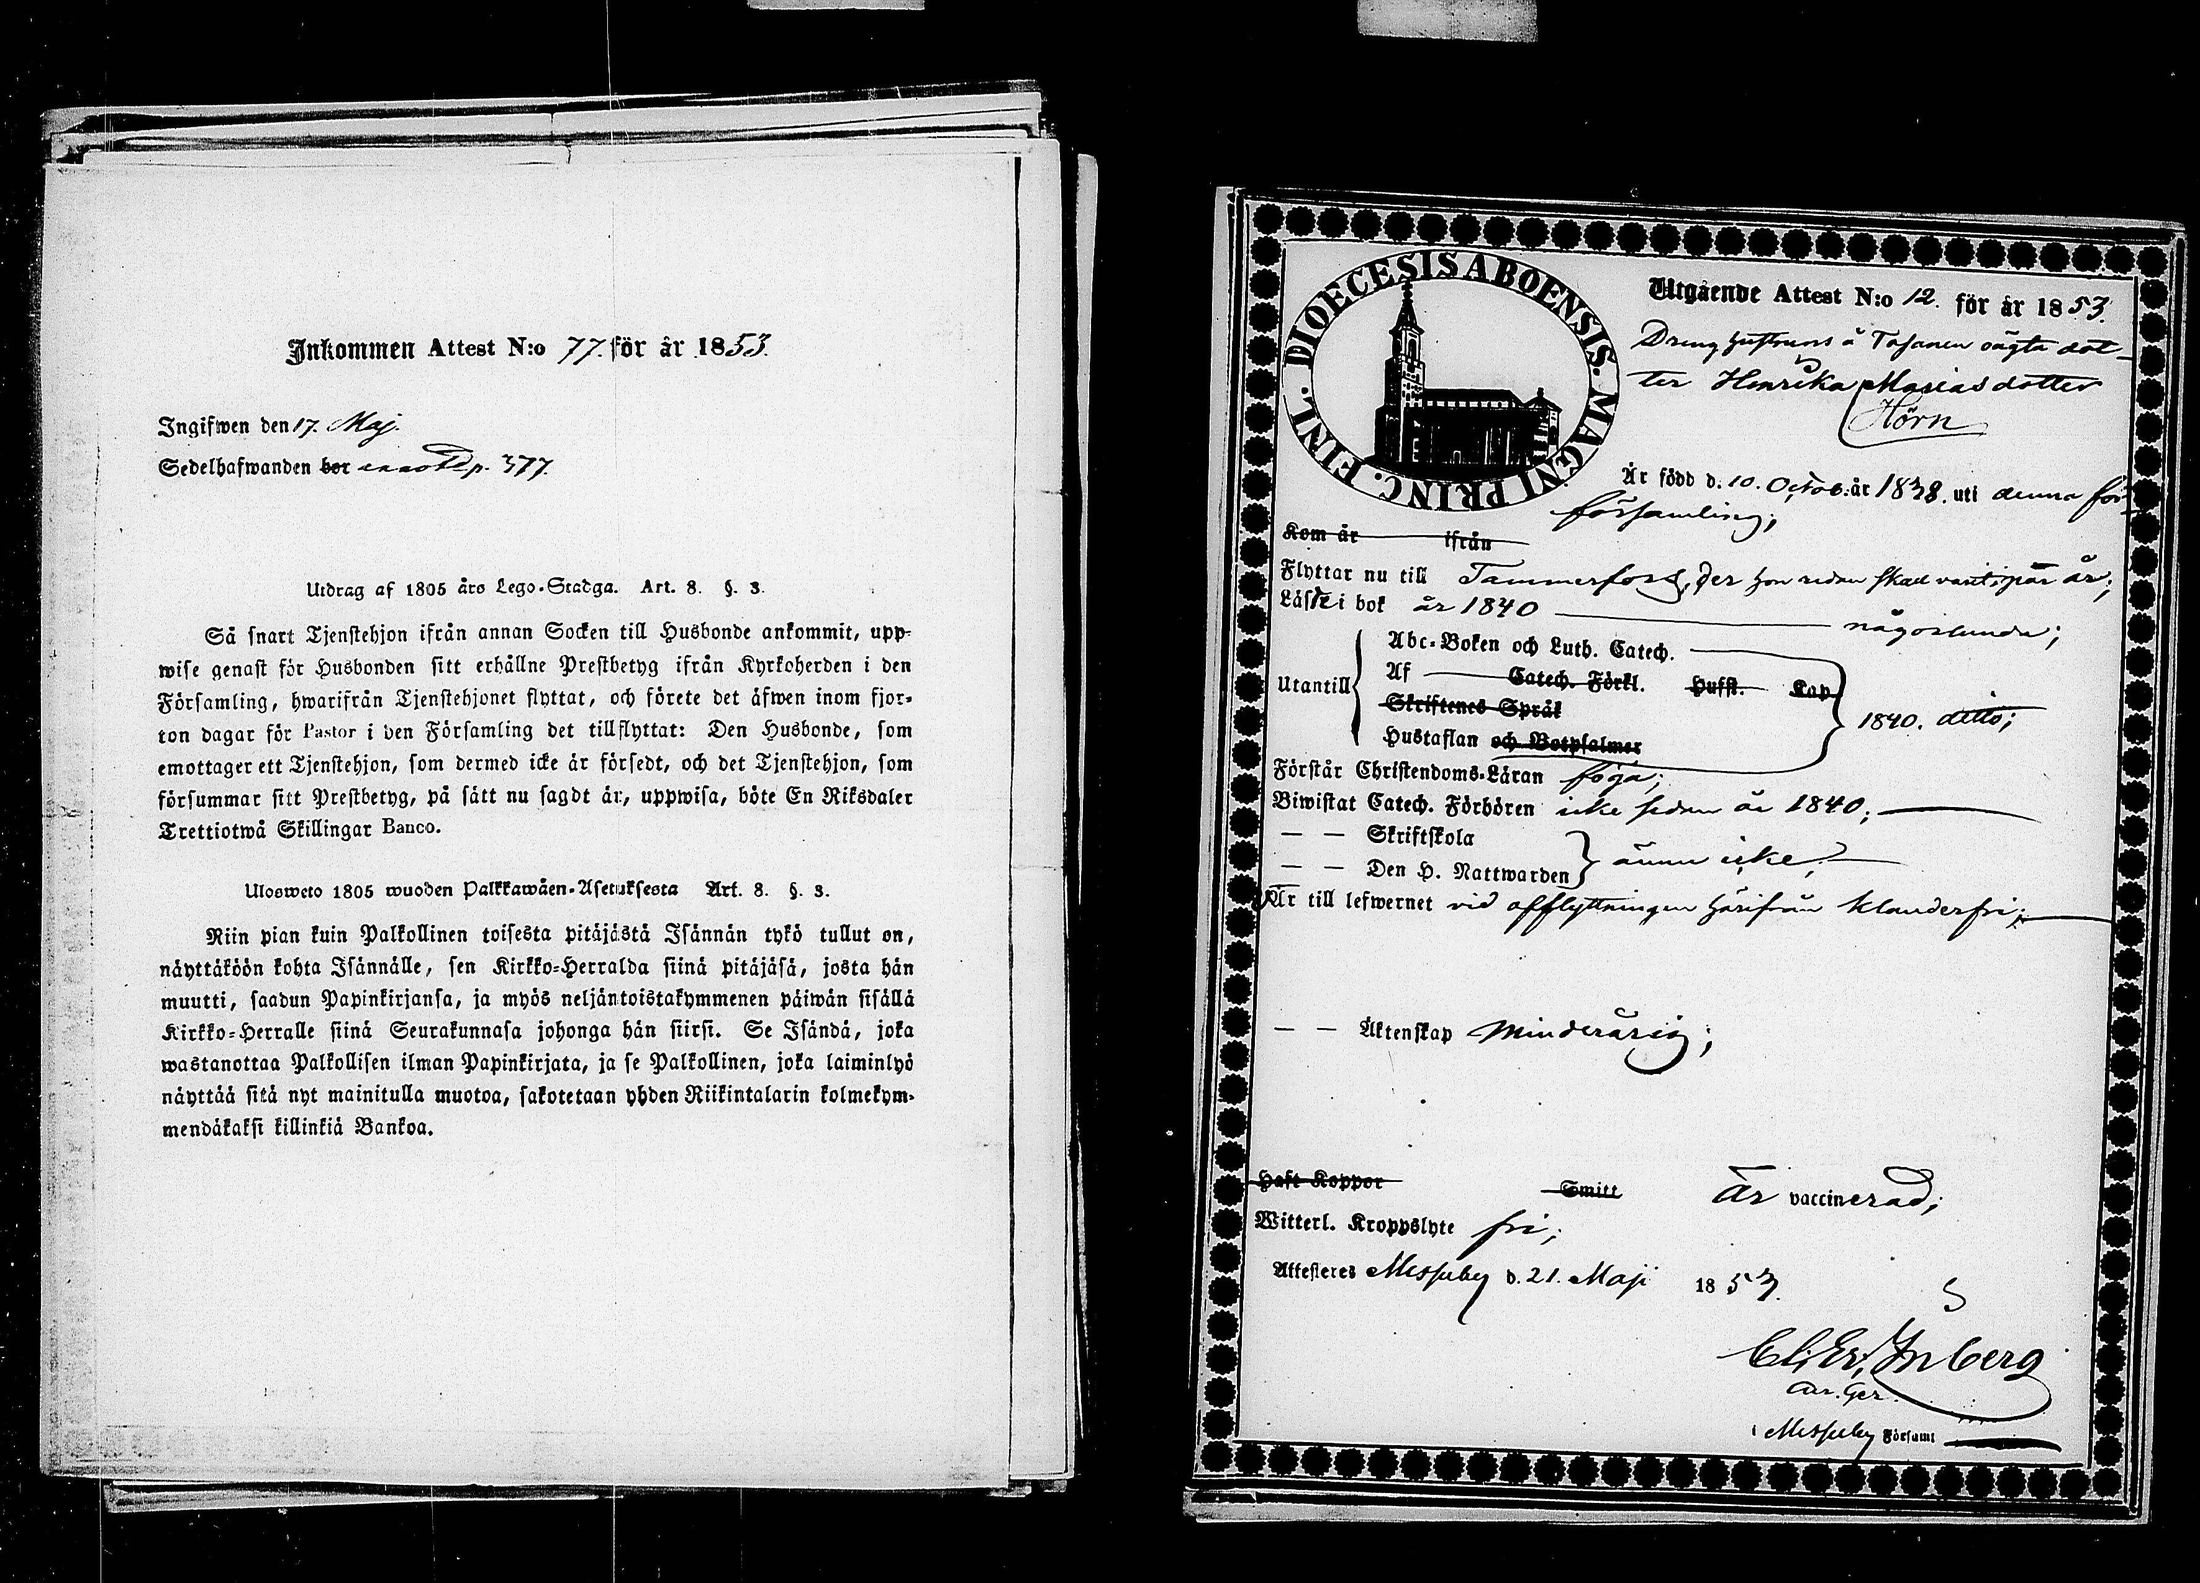 Inkommen Attest N:o 77. för år 1853.
Ingifwen den 17. Maj.
Sedelhafwanden bor p. 377.
Utdrag af 1805 års Lego-Stadga. Art. 8. §. 3.
Så snart Tjenstehjon ifrån annan Socken till Husbonde ankommit, upp-
wise genast för Husbonden sitt erhållne Prestbetyg ifrån Kyrkoherden i den
Församling, hwarifrån Tjenstehjonet flyttat, och förete det äfwen inom fjor-
ton dagar för Pastor i den Församling det tillflyttat: Den Husbonde, som
emottager ett Tjenstehjon, som dermed icke är försedt, och det Tjenstehjon, som
försummar sitt Prestbetyg, på sätt nu sagdt är, uppwisa, böte En Riksdaler
Trettiotwå Skillingar Banco.
Ulosweto 1805 wuoden Palkkawäen-Asetuksesta Art. 8. §. 3.
Niin pian kuin Palkollinen toisesta pitäjästä Isännän tykö tullut on,
näyttäköön kohta Isännälle, sen Kirkko-Herralda siinä pitäjäsä, josta hän
muutti, saadun Papinkirjansa, ja myös neljäntoistakymmenen päiwän sisällä
Kirkko-Herralle siinä Seurakunnasa johonga hän siirsi. Se Isändä, joka
wastanottaa Palkollisen ilman Papinkirjata, ja se Palkollinen, joka laiminlyö
näyttää sitä nyt mainitulla muotoa, sakotetaan yhden Riikintalarin kolmekym-
mendäkaksi killinkiä Bankoa.
DIOECESIS ABOENSIS. MAGNI PRINC. FINL.
Utgående Attest N:o 12. för år 1853.
Dreng hustruns å Tasanen oägta dot-
ter Henrika Mariasdotter
Hörn
Är född d. 10. Octob. år 1838. uti denna för-
församling;
Kom år ifrån
Flyttar nu till Tammerfors, der hon redan skall varit i par år;
Läste i bok år 1840 någorlunda;
Abc-Boken och Luth. Catech.
Af Catech. Förkl. Hufst. Kap.
Utantill
Skriftenes Språk
1840. ditto;
Hustaflan och Botpsalmer
Förstår Christendoms-Läran föga;
Biwistat Catech. Förhören icke sedan år 1840;
— — Skriftskola
ännu icke;
— — Den H. Nattwarden
Är till lefwernet vid afflyttningen härifrån klanderfri;
— — Äktenskap Minderårig;
Haft Koppor Smitt Är vaccinerad;
Witterl. Kroppslyte fri;
Attesteres Messuby d. 21. Maji 1853.
Cl. Er. Inberg
Messuby Församl